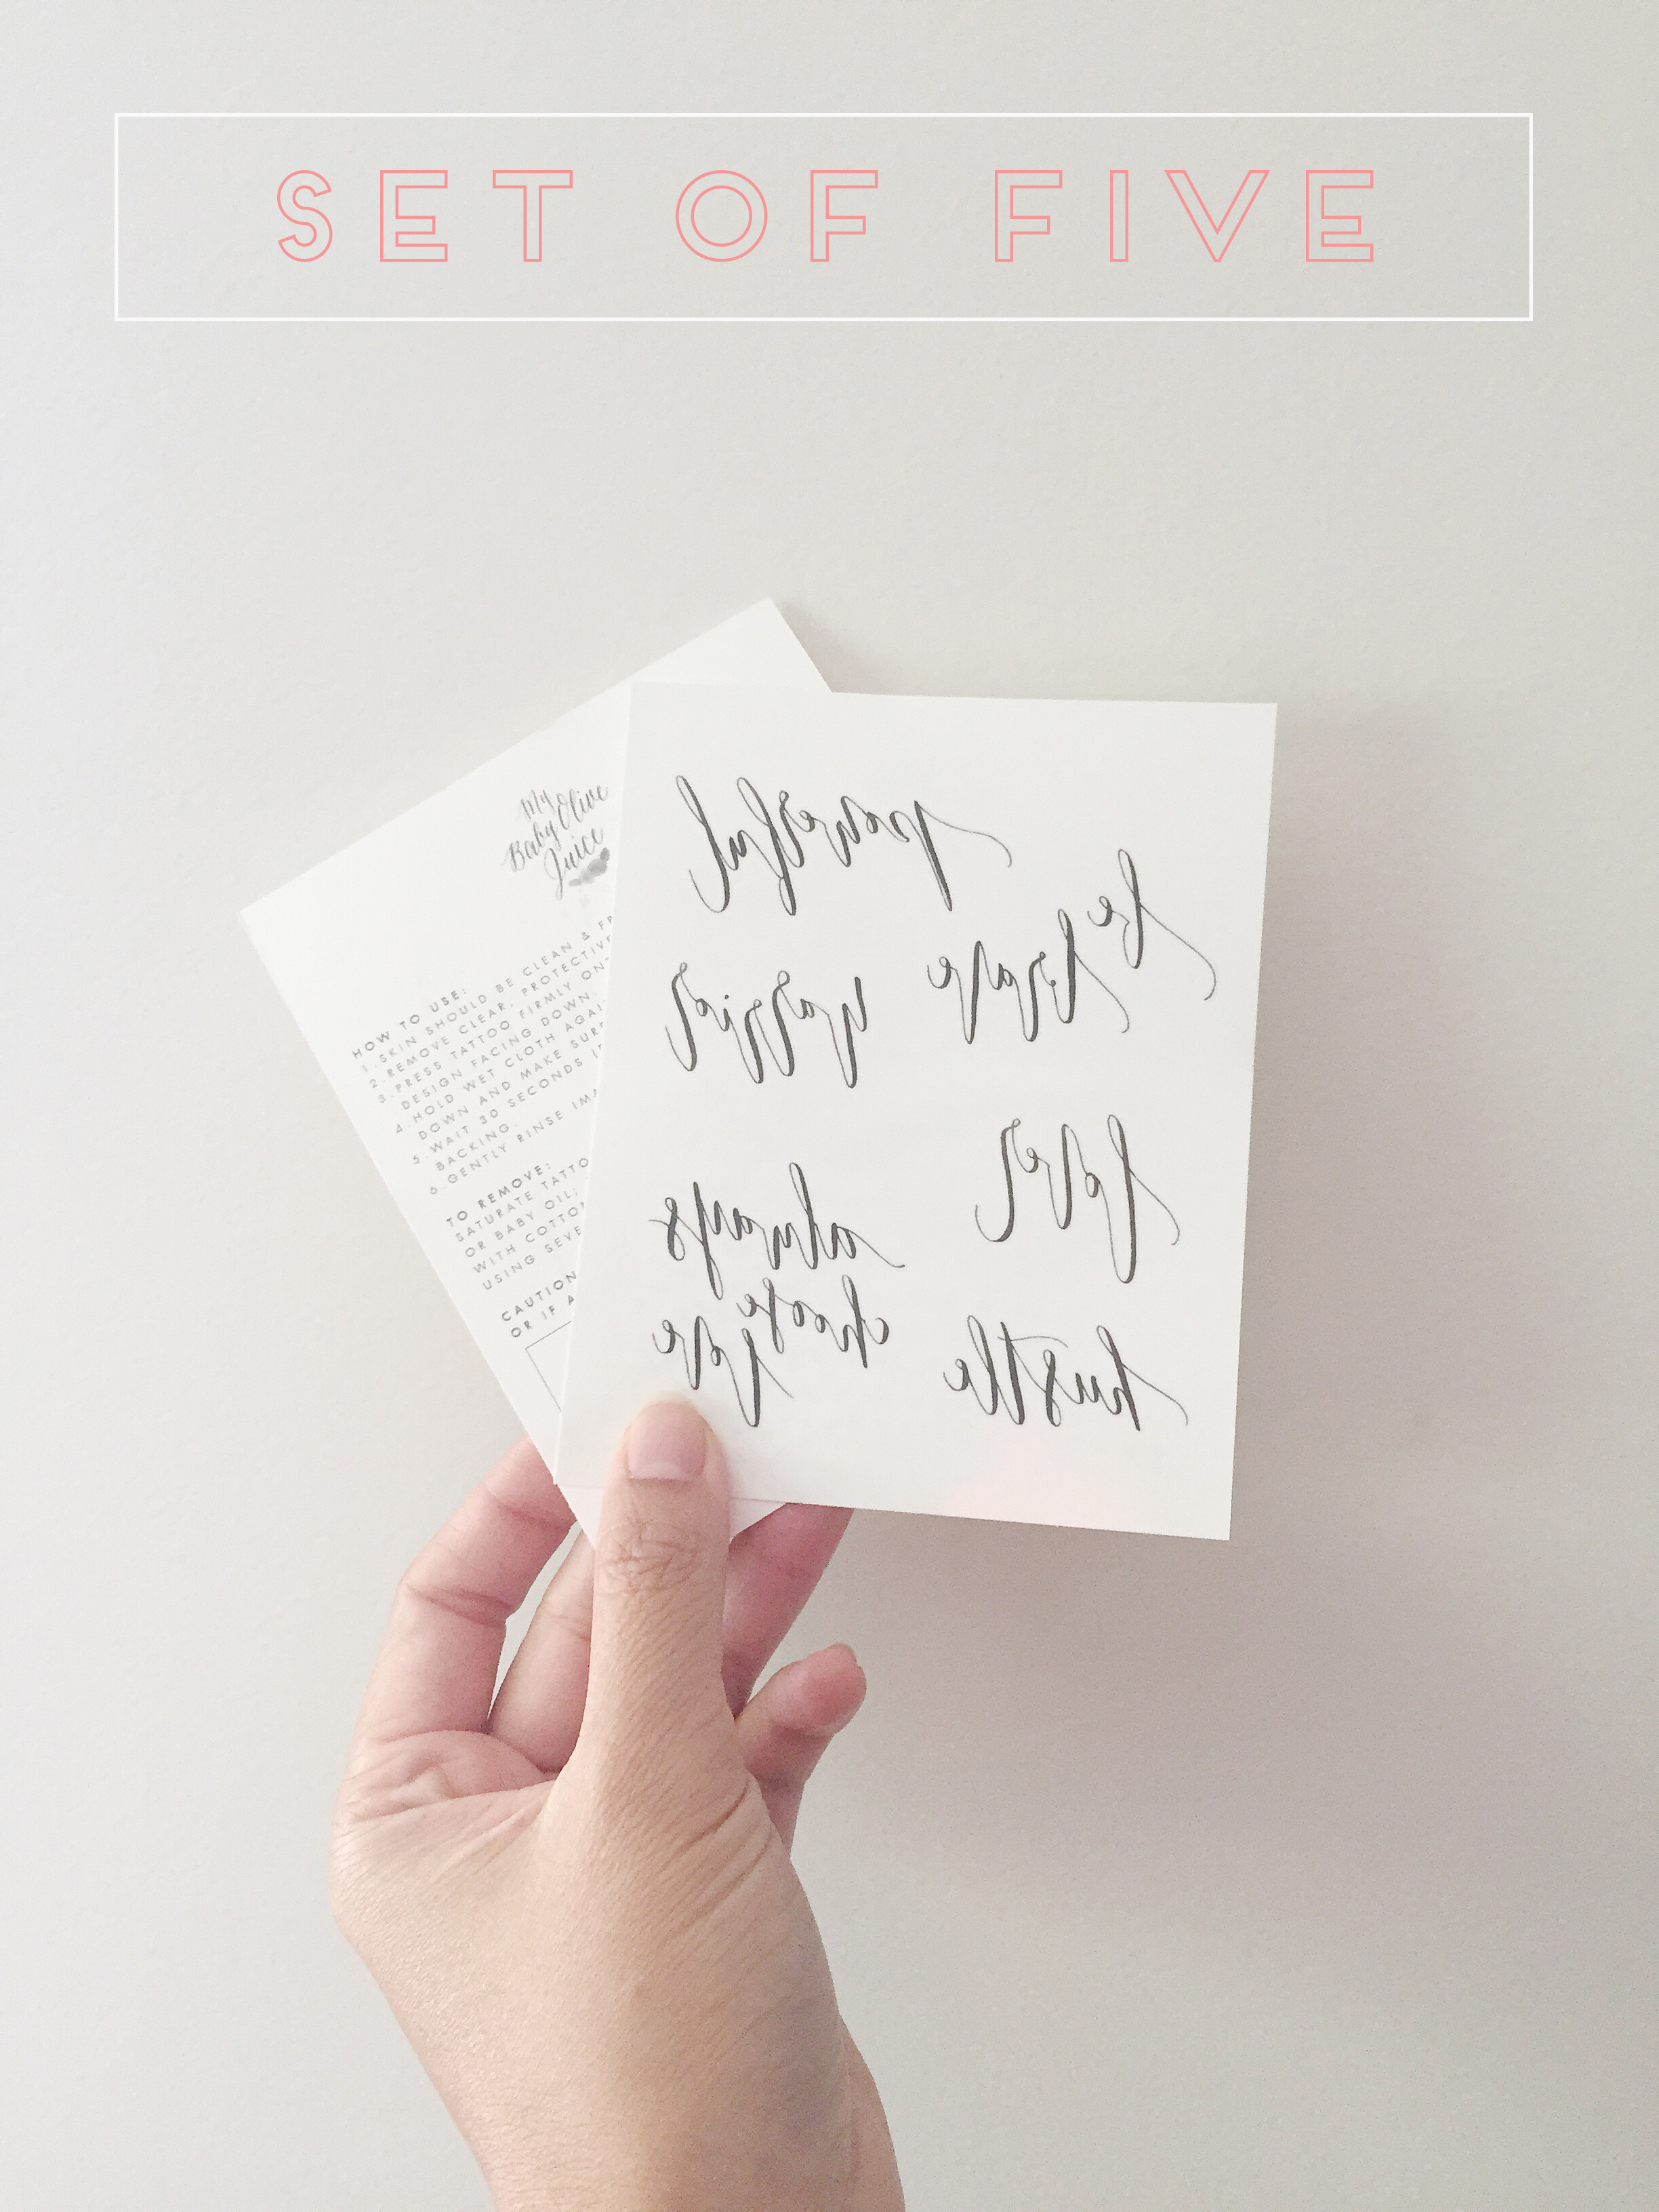 SET OF FIVE
My
Baby Olive
Juice
HOW TO USE:
1. SKIN SHOULD BE CLEAN & FR
2. REMOVE CLEAR, PROTECTIVE
3. PRESS TATTOO FIRMLY ONT
DESIGN FACING DOWN.
4. HOLD WET CLOTH AGAI
DOWN AND MAKE SURE
5. WAIT 30 SECONDS (
BACKING.
6. GENTLY RINSE IMA
TO REMOVE:
SATURATE TATTO
OR BABY OIL;
WITH COTTON
USING SEVE
CAUTION
OR IF A
powerful
be
brave
warrior
lover
always
choose
love
hustle